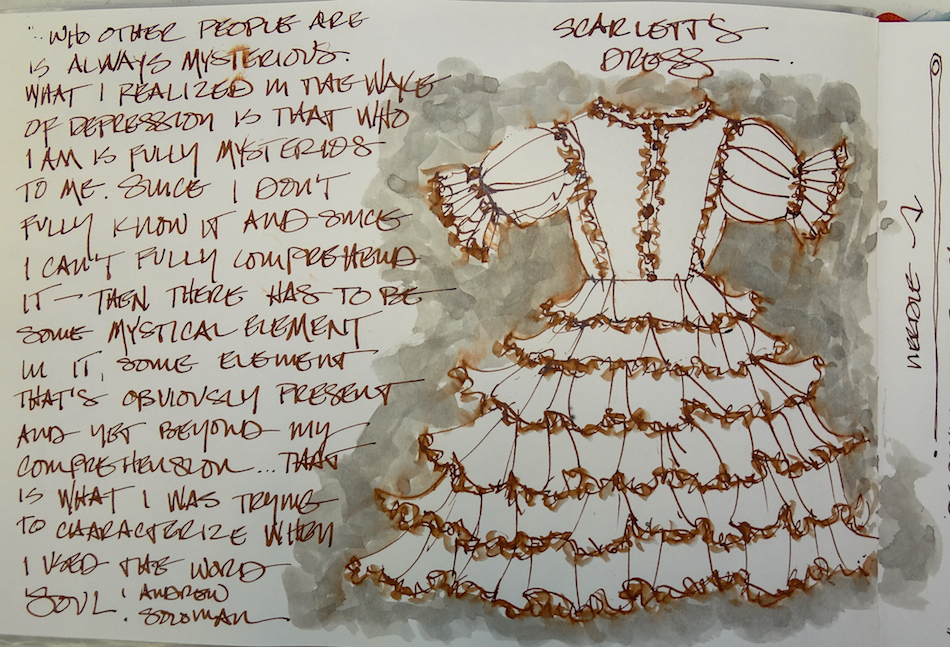 "WHO OTHER PEOPLE ARE
IS ALWAYS MYSTERIOUS.
WHAT I REALIZED IN THE WAKE
OF DEPRESSION IS THAT WHO
I AM IS FULLY MYSTERIOS
TO ME. SINCE I DON'T
FULLY KNOW IT AND SINCE
I CAN'T FULLY COMPREHEND
IT - THEN THERE HAS TO BE
SOME MYSTICAL ELEMENT
IN IT, SOME ELEMENT
THAT'S OBVIOUSLY PRESENT
AND YET BEYOND MY
COMPREHENSION... THAT
IS WHAT I WAS TRYING
TO CHARACTERIZE WHEN
I USED THE WORD
'SOUL.' ANDREW
SOLOMAN
SCARLETT'S
DRESS
NEEDLE